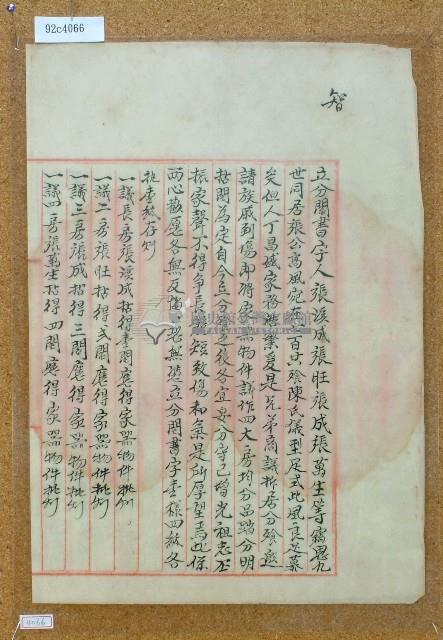 92c4066
智
立分鬮書字人張漢成張旺張成張萬生等竊思九
世同居張公高風宛在百口共飱陳氏儀型足式此風良足慕
矣但人丁昌盛家務浩繁爰是兄弟商議拆居分飱邀
請族戚到場即將家器物件議作四大房均分品踏分明
拈鬮為定自今立分之後各宜安分守己增光祖志丕
振家聲不得争長競短致傷和氣是所厚望焉此係
两心歡愿各無反悔恐無憑立分鬮書字壹樣四紙各
執壹紙存炤
一議長房張漢成拈得壹鬮應得家器物件批炤
一議二房張旺拈得弍鬮應得家器物件批炤
一議三房張成拈得三鬮應得家器物件批炤
一議四房張萬生拈得四鬮應得家器物件批炤
4066